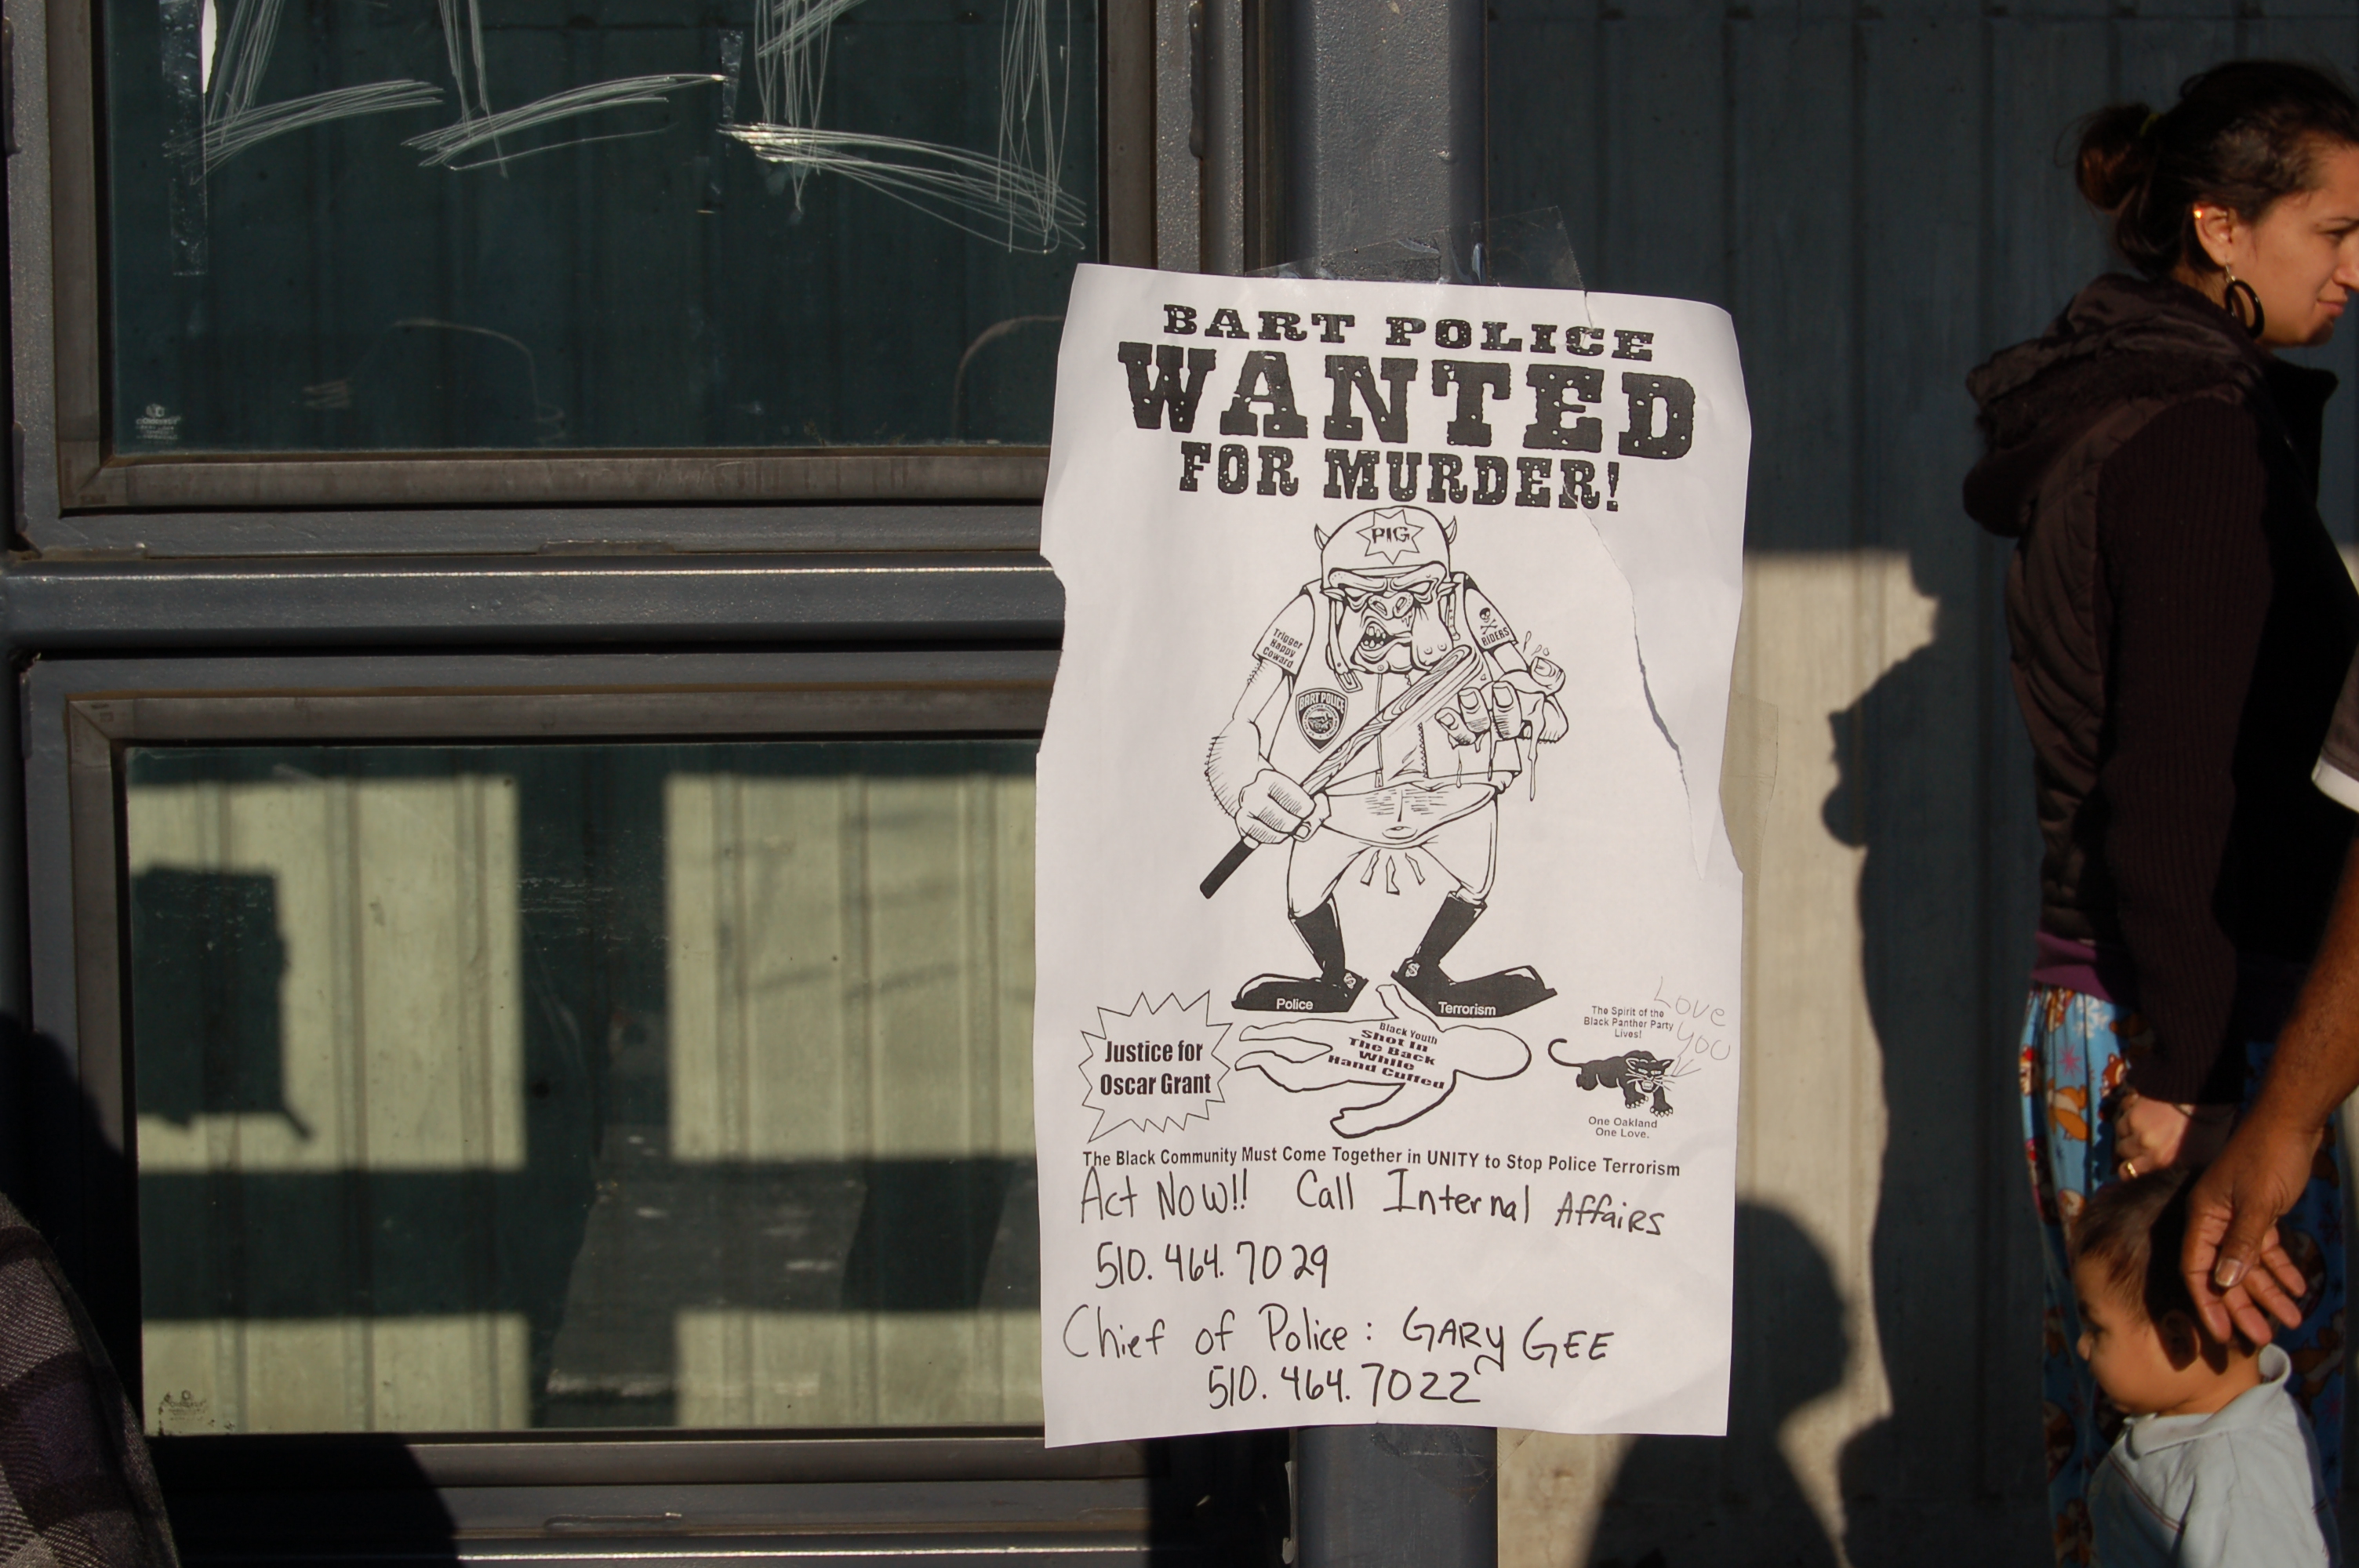 BART POLICE
WANTED
FOR MURDER!
PIG
Trigger
Happy
Coward
RIDERS
BART POLICE
Police
Terrorism
Justice for
Oscar Grant
Black Youth
Shot In
The Back
While
Hand Cuffed
The Spirit of the
Black Panther Party
Lives!
Love
you
One Oakland
One Love.
The Black Community Must Come Together in UNITY to Stop Police Terrorism
Act Now!! Call Internal Affairs
510.464.7029
Chief of Police: GARy GEE
510.464.7022